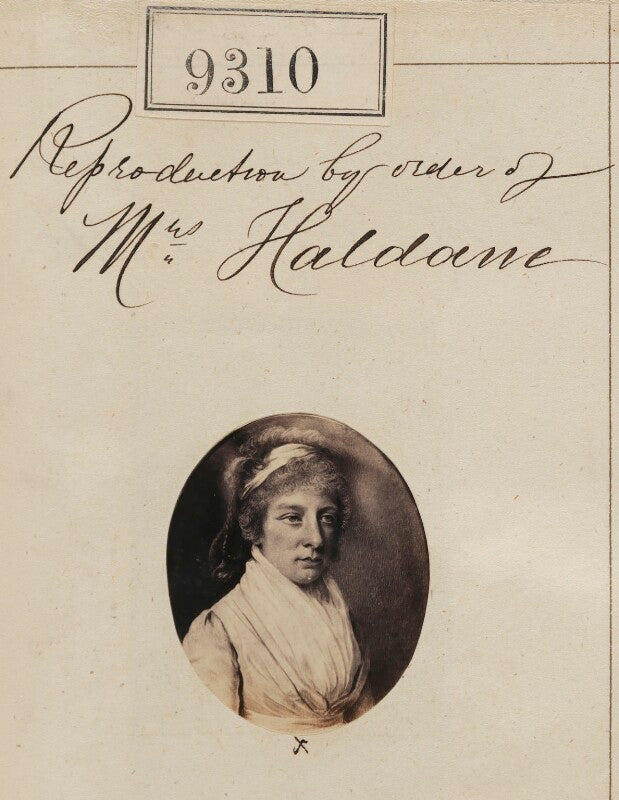 9310
Reproduction by order of
Mrs Haldane
x